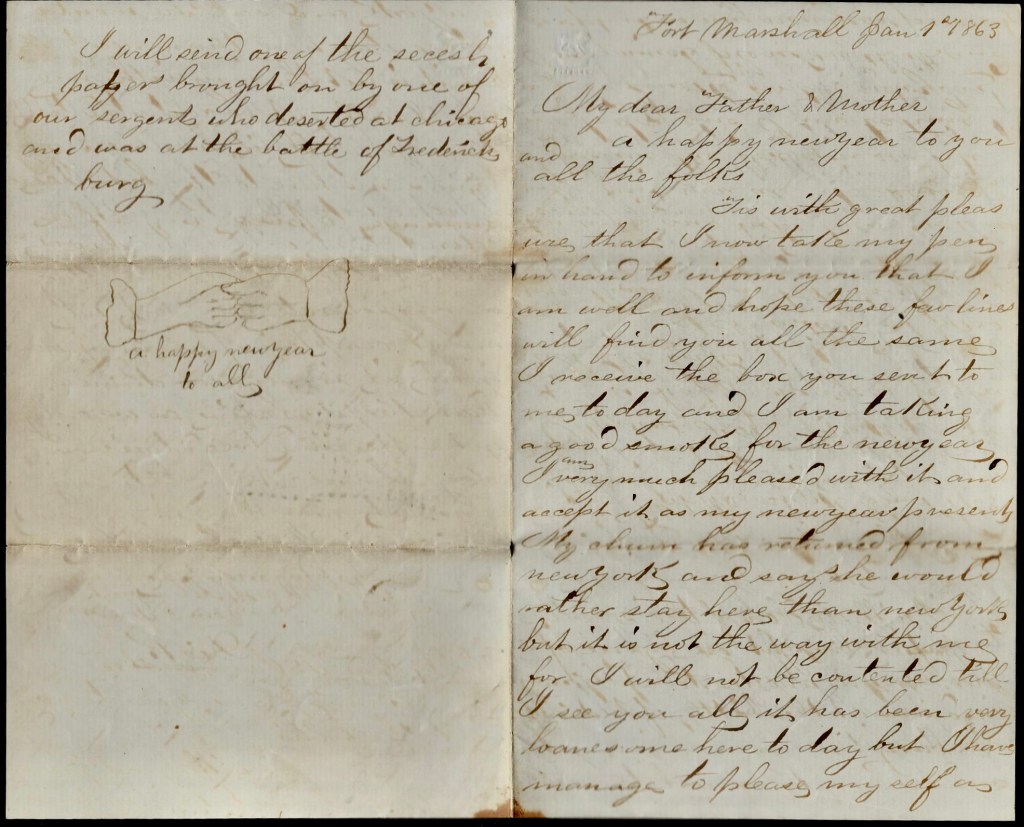 Fort Marshall Jan 1st 1863
My dear Father & Mother
a happy newyear to you
and
all the folks
Tis with great pleas
ure that I now take my pen
in hand to inform you that I
am well and hope these few lines
will find you all the same
I receive the box you sent to
me to day and I am taking
a good smoke for the newyear
I am very much pleased with it and
accept it as my newyear present
My chum has returned from
newyork and says he would
rather stay here than newyork
but it is not the way with me
for I will not be contented till
I see you all it has been very
loanesome here to day but I have
manage to please my self as
I will send one of the secesh
paper brought on by one of
our sergent who deserted at chicago
and was at the battle of Frederick
burg
a happy newyear
to all